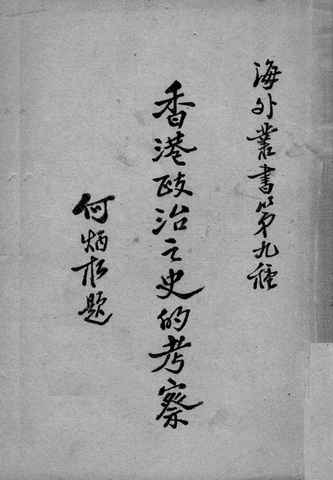 海外叢書第九種
香港政治之史的考察
何炳松題